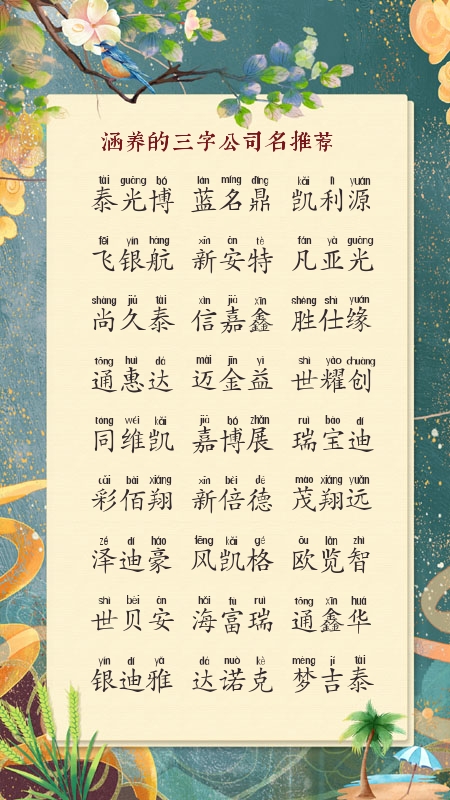 涵养的三字公司名推荐
tài guāng bó lán míng dǐng kǎi lì yuán
泰光博 蓝名鼎 凯利源
fēi yín háng xīn ān tè fán yà guāng
飞银航 新安特 凡亚光
shàng jiǔ tài xìn jiā xīn shèng shì yuán
尚久泰 信嘉鑫 胜仕缘
tōng huì dá mài jīn yì shì yào chuàng
通惠达 迈金益 世耀创
tóng wéi kǎi jiā bó zhǎn ruì bǎo dí
同维凯 嘉博展 瑞宝迪
cǎi bǎi xiáng xīn bèi dé mào xiáng yuǎn
彩佰翔 新倍德 茂翔远
zé dí háo fēng kǎi gé ōu lǎn zhì
泽迪豪 风凯格 欧览智
shì bèi ān hǎi fù ruì tōng xīn huá
世贝安 海富瑞 通鑫华
yín dí yǎ dá nuò kè mèng jí tài
银迪雅 达诺克 梦吉泰